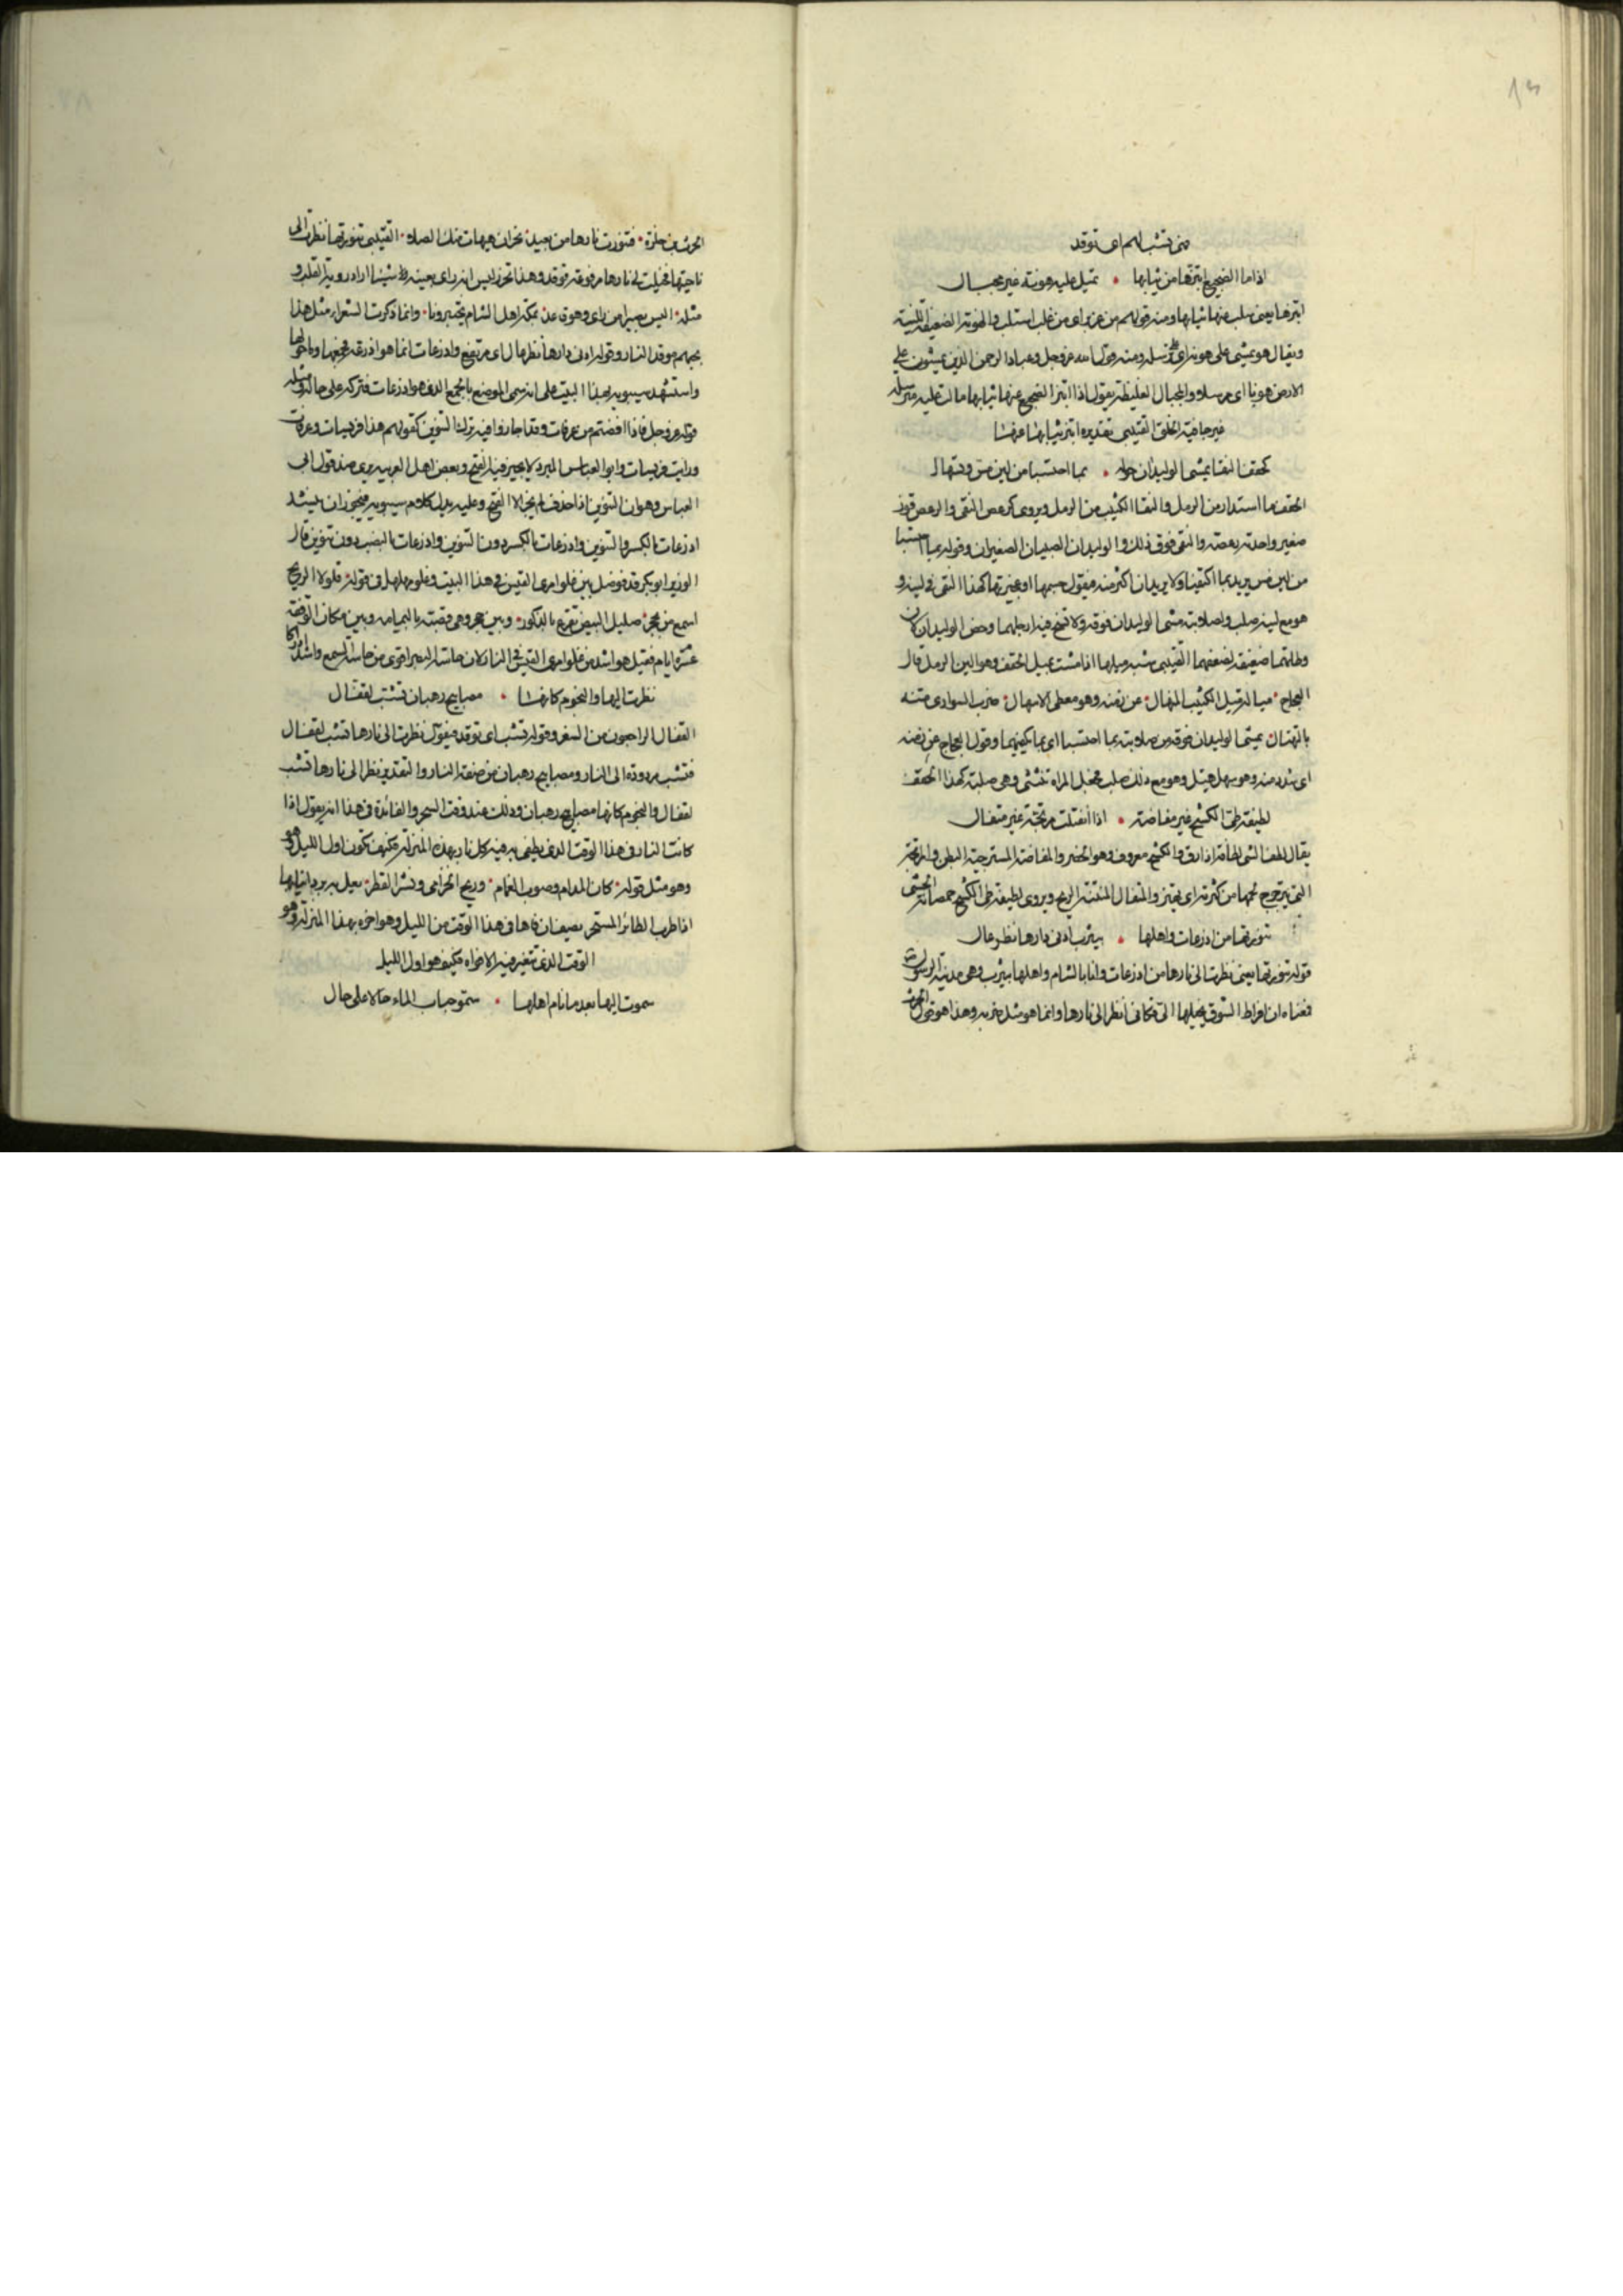 ١٣
فهي تشب لهم اى توقد
اذا ما الضجيع ابتزها من ثيابها • تميل عليه هونة غير مجبال
ابتزها يعنى سلب عنها ثيابها ومنه قولهم من عز بز اى من غلب استلب والهونة الضعيفة اللينة
ويقال هو يمشى على هونه اى على رسله ومنه قول الله عز وجل وعباد الرحمن الذين يمشون على
الارض هونا اى مرسلا والمجبال الغليظة يقول اذا ابتز الضجيع عنها ثيابها مالت عليه مترسلة
غير جافية الخلق القتيبى تقديره ابتز ثيابها عنها
كحقف النقا يمشى الوليدان حوله • بما احتسبا من لين مس وتسهال
الحقف ما استدار من الرمل والنقا الكثيب من الرمل ويروى كدعص النقى والدعص قوز
صغير واحدته دعصة والنقى فوق ذلك والوليدان الصبيان الصغيران وقوله بما احتسبا
من لين مس يريد بما اكتفيا ولا يريدان اكثر منه فيقول جسمها او عجيزتها كهذا النقى فى لينه و
هو مع لينه صلب ولصلابته مشى الوليدان فوقه ولا تسخ فيه ارجلهما وخص الوليدان لان
وطاتهما ضعيفة لضعفهما القتيبى شبه ميلها اذا مشت بميل الحقف وهو الين الرمل قال
العجاج • ميالة مثل الكثيب المنهال • عزز منه وهو معطى الاسهال • ضرب السوارى متنه
بالتهتال • يمشى الوليدان فوقه من صلابته بما احتسبا اى بما يكفيهما وقول العجاج عزز منه
اى شدد منه وهو سهل هيل وهو مع ذلك صلب فجعل المراة تتثنى وهى صلبة كهذا الحقف
لطيفة طى الكشح غير مفاضة • اذا انفتلت مرتجة غير متفال
يقال لطف الشى لطافة اذا رق والكشح معروف وهو الخصر والمفاضة المسترخية البطن والمرتجة
التى يترجرج لحمها من كثرته اى يهتز والمتفال المنتنة الريح ويروى لطيفة طى الكشح خمصانة الحشى
تنورتها من اذرعات واهلها • بيثرب ادنى دارها نظر عال
قوله تنورتها يعنى نظرت الى نارها من اذرعات وانا بالشام واهلها بيثرب وهى مدينة الرسول
فمعناه ان افراط الشوق يخيلها الى فكانى انظر الى نارها وانما هو مثل ضربه وهذا هو قول الحرث
الحرث بن حلزة • فتنورت نارها من بعيد • بخزاز هيهات منك الصلاء • القتيبى تنورتها نظرت الى
ناحيتها فخيلت لى نارها مرفوعة توقد وهذا تحزن ليس انه راى بعينه شيئا اراد روية القلب و
مثله • اليس بصيرا من راى وهو قاعد • بمكة اهل الشام يختبزونا • وانما ذكرت الشعراء مثل هذا
بحبهم موقد النار وقوله ادنى دارها نظر عال اى مرتفع واذرعات انما هو اذرعة فجمعها وما حولها
واستشهد سيبويه بهذا البيت على انه سمى الموضع بالجمع الذى هو اذرعات فتركه على حاله ومثله
قوله عز وجل فاذا افضتم من عرفات وقد اجازوا فيه ترك التنوين كقولهم هذا قريسات وعرفات
ورايت قريسات وابو العباس المبرد لا يجيز فيه الفتح وبعض اهل العربية يرى ضد قول ابى
العباس وهو ان التنوين اذا حذف لم يجز الا الفتح وعليه يدل كلام سيبويه فيجوز ان ينشد
اذرعات بالكسر والتنوين واذرعات بالكسر دون التنوين واذرعات بالنصب دون تنوين قال
الوزير ابو بكر قد فوضل بين غلو امرى القيس فى هذا البيت وغلو مهلهل فى قوله • فلولا الريح
اسمع من بحجر • صليل البيض تقرع بالذكور • وبين حجر وهى قصبة باليمامه وبين مكان الوقعة
عشرة ايام فقيل هو اشد من غلو امرى القيس فى النار لان حاسة البصر اقوى من حاسة السمع واشد
نظرت اليها والنجوم كانها • مصابيح رهبان تشب لقفال
القفال الراجعون من السفر وقوله تشب اى توقد فيقول نظرت الى نارها تشب لقفال
فتشب مردودة الى النار ومصابيح رهبان من صفة النار والتقدير نظرت الى نارها تشب
لقفال والنجوم كانها مصابيح رهبان وذلك عند وقت السحر والفائدة فى هذا انه يقول اذا
كانت النار فى هذا الوقت الذى يطفى به فيه كل نار بهذه المنزلة فكيف تكون اول الليل وهو
وهو مثل قوله • كان المدام وصوب الغمام • وريح الخزامى ونشر القطر • يعل به برد انيابها
اذا طرب الطائر المستحر • يصف ان فاها فى هذا الوقت من الليل وهو اخره بهذا المنزلة وهو
الوقت الذى تتغير فيه الافواه فكيف هو اول الليل
سموت اليها بعد ما نام اهلها • سمو حباب الماء حالا على حال